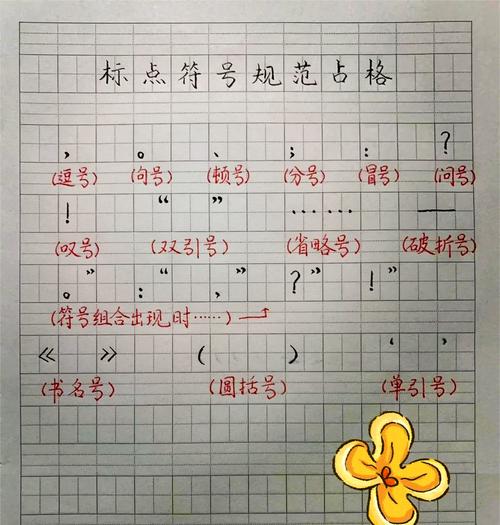 标点符号规范占格
， 。 、 ； ： ？
(逗号) (句号) (顿号) (分号) (冒号) (问号)
！ “ ” …… ——
(叹号) (双引号) (省略号) (破折号)
。” ：“ ，” ？” ！”
(符号组合出现时……)
《 》 （ ） ‘ ’
(书名号) (圆括号) (单引号)